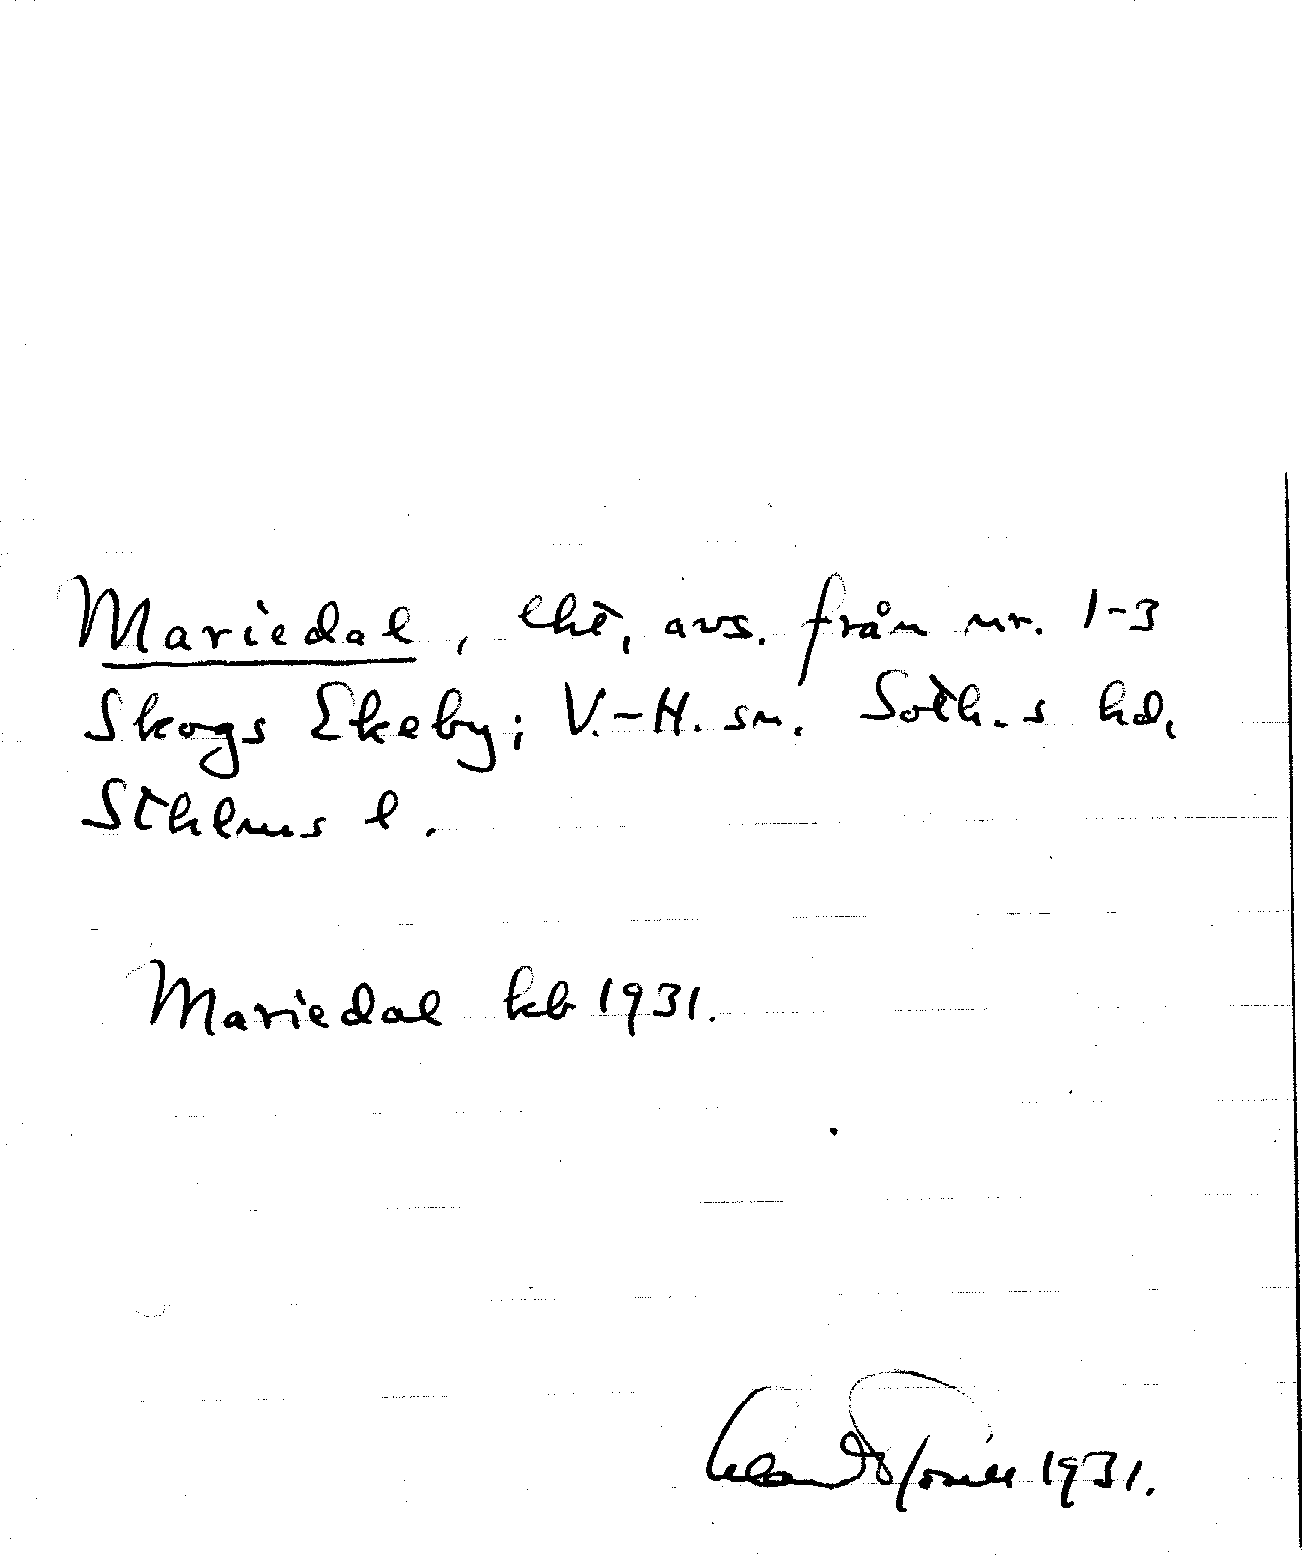 Mariedal, lht, avs. från nr. 1-3
Skogs Ekeby; V.-H. sn. Soth.s hd.
Sthlms l.
Mariedal kb 1931.
1931.